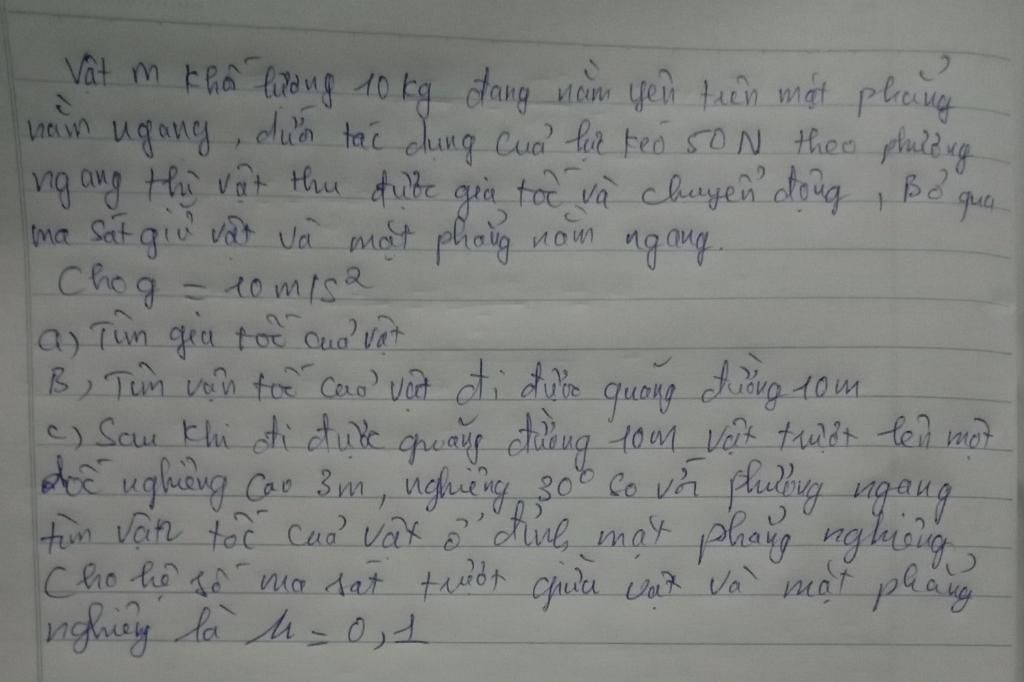 Vật m khối lượng 10 kg đang nằm yên trên mặt phẳng
nằm ngang, dưới tác dụng của lực kéo 50N theo phương
ngang thì vật thu được gia tốc và chuyển động, Bỏ qua
ma sát giữ vật và mặt phẳng nằm ngang.
Cho g = 10 m/s²
a) Tìm gia tốc của vật
B, Tìm vận tốc của vật đi được quãng đường 10m
c) Sau khi đi được quãng đường 10m vật trượt lên một
dốc nghiêng cao 3m, nghiêng 30° so với phương ngang
tìm vận tốc của vật ở đỉnh mặt phẳng nghiêng
Cho hệ số ma sát trượt giữa vật và mặt phẳng
nghiêng là μ = 0,1